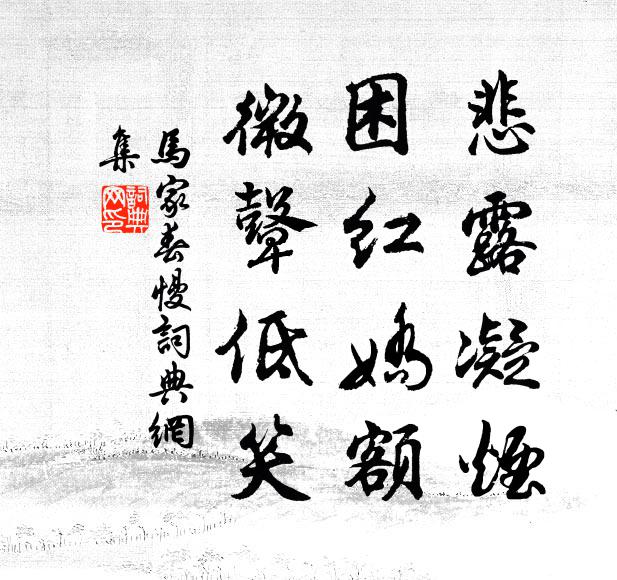 悲露凝煙
困紅嬌額
微聲低笑
馬家春慢詞典網
集
詞典
網印